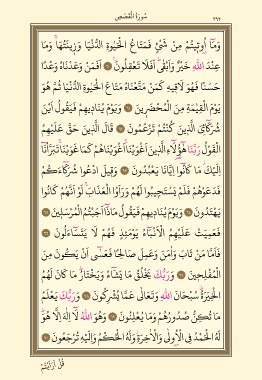 سُورَةُ الْقَصَصِ
٣٩٢
وَمَٓا اُو۫ت۪يتُمْ مِنْ شَيْءٍ فَمَتَاعُ الْحَيٰوةِ الدُّنْيَا وَز۪ينَتُهَاۚ وَمَا
عِنْدَ اللّٰهِ خَيْرٌ وَاَبْقٰىۜ اَفَلَا تَعْقِلُونَ۟ ﴿٦٠﴾ اَفَمَنْ وَعَدْنَاهُ وَعْدًا
حَسَنًا فَهُوَ لَاق۪يهِ كَمَنْ مَتَّعْنَاهُ مَتَاعَ الْحَيٰوةِ الدُّنْيَا ثُمَّ هُوَ
يَوْمَ الْقِيٰمَةِ مِنَ الْمُحْضَر۪ينَ ﴿٦١﴾ وَيَوْمَ يُنَاد۪يهِمْ فَيَقُولُ اَيْنَ
شُرَكَٓاءِيَ الَّذ۪ينَ كُنْتُمْ تَزْعُمُونَ ﴿٦٢﴾ قَالَ الَّذ۪ينَ حَقَّ عَلَيْهِمُ
الْقَوْلُ رَبَّنَا هٰٓؤُ۬لَٓاءِ الَّذ۪ينَ اَغْوَيْنَاۚ اَغْوَيْنَاهُمْ كَمَا غَوَيْنَاۚ تَبَرَّأْنَٓا
اِلَيْكَۘ مَا كَانُٓوا اِيَّانَا يَعْبُدُونَ ﴿٦٣﴾ وَق۪يلَ ادْعُوا شُرَكَٓاءَكُمْ
فَدَعَوْهُمْ فَلَمْ يَسْتَج۪يبُوا لَهُمْ وَرَاَوُا الْعَذَابَۚ لَوْ اَنَّهُمْ كَانُوا
يَهْتَدُونَ ﴿٦٤﴾ وَيَوْمَ يُنَاد۪يهِمْ فَيَقُولُ مَاذَٓا اَجَبْتُمُ الْمُرْسَل۪ينَ ﴿٦٥﴾
فَعَمِيَتْ عَلَيْهِمُ الْاَنْبَٓاءُ يَوْمَئِذٍ فَهُمْ لَا يَتَسَٓاءَلُونَ ﴿٦٦﴾
فَاَمَّا مَنْ تَابَ وَاٰمَنَ وَعَمِلَ صَالِحًا فَعَسٰٓى اَنْ يَكُونَ مِنَ
الْمُفْلِح۪ينَ ﴿٦٧﴾ وَرَبُّكَ يَخْلُقُ مَا يَشَٓاءُ وَيَخْتَارُۜ مَا كَانَ لَهُمُ
الْخِيَرَةُۜ سُبْحَانَ اللّٰهِ وَتَعَالٰى عَمَّا يُشْرِكُونَ ﴿٦٨﴾ وَرَبُّكَ يَعْلَمُ
مَا تُكِنُّ صُدُورُهُمْ وَمَا يُعْلِنُونَ ﴿٦٩﴾ وَهُوَ اللّٰهُ لَٓا اِلٰهَ اِلَّا هُوَۜ
لَهُ الْحَمْدُ فِي الْاُو۫لٰى وَالْاٰخِرَةِۘ وَلَهُ الْحُكْمُ وَاِلَيْهِ تُرْجَعُونَ ﴿٧٠﴾
قُلْ اَرَاَيْتُمْ